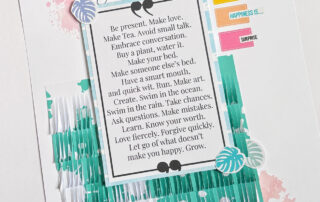 HAPPINESS IS...
SURPRISE
Be present. Make love.
Make Tea. Avoid small talk.
Embrace conversation.
Buy a plant, water it.
Make your bed.
Make someone else's bed.
Have a smart mouth,
and quick wit. Run. Make art.
Create. Swim in the ocean.
Swim in the rain. Take chances.
Ask questions. Make mistakes.
Learn. Know your worth.
Love fiercely. Forgive quickly.
Let go of what doesn't
make you happy. Grow.